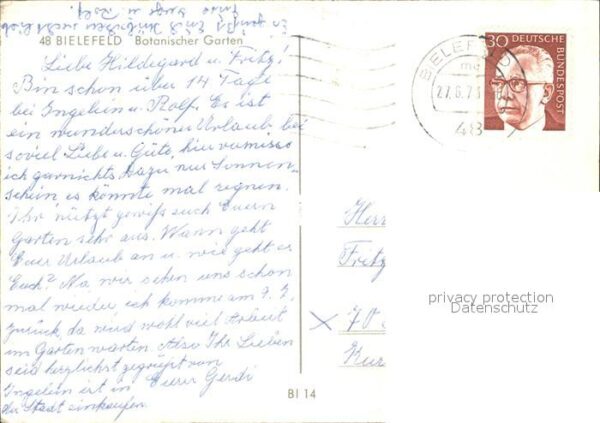 Es grüßt Euch
Eure Inge u. Rolf.
48 BIELEFELD Botanischer Garten
Liebe Hildegard u. Fritz!
Bin schon über 14 Tage
bei Ingelein u. Rolf. Es ist
ein wunderschöner Urlaub, bei
soviel Liebe u. Güte, hier vermisse
ich garnichts. Dazu nur Sonnen-
schein es könnte mal regnen.
Ihr nützt gewiß auch Euern
Garten sehr aus. Wann geht
Euer Urlaub an u. wie geht es
Euch? Na, wir sehen uns schon
mal wieder, ich komme am 7. 7.
zurück, da wird wohl viel Arbeit
im Garten warten. Also Ihr Lieben
seid herzlichst gegrüßt von
Ingelein ist in Eurer Gerdi
der Stadt einkaufen.
BI 14
BIELEFELD
27.6.73
48
30 DEUTSCHE BUNDESPOST
Herr
Fritz
70
Kur
privacy protection
Datenschutz